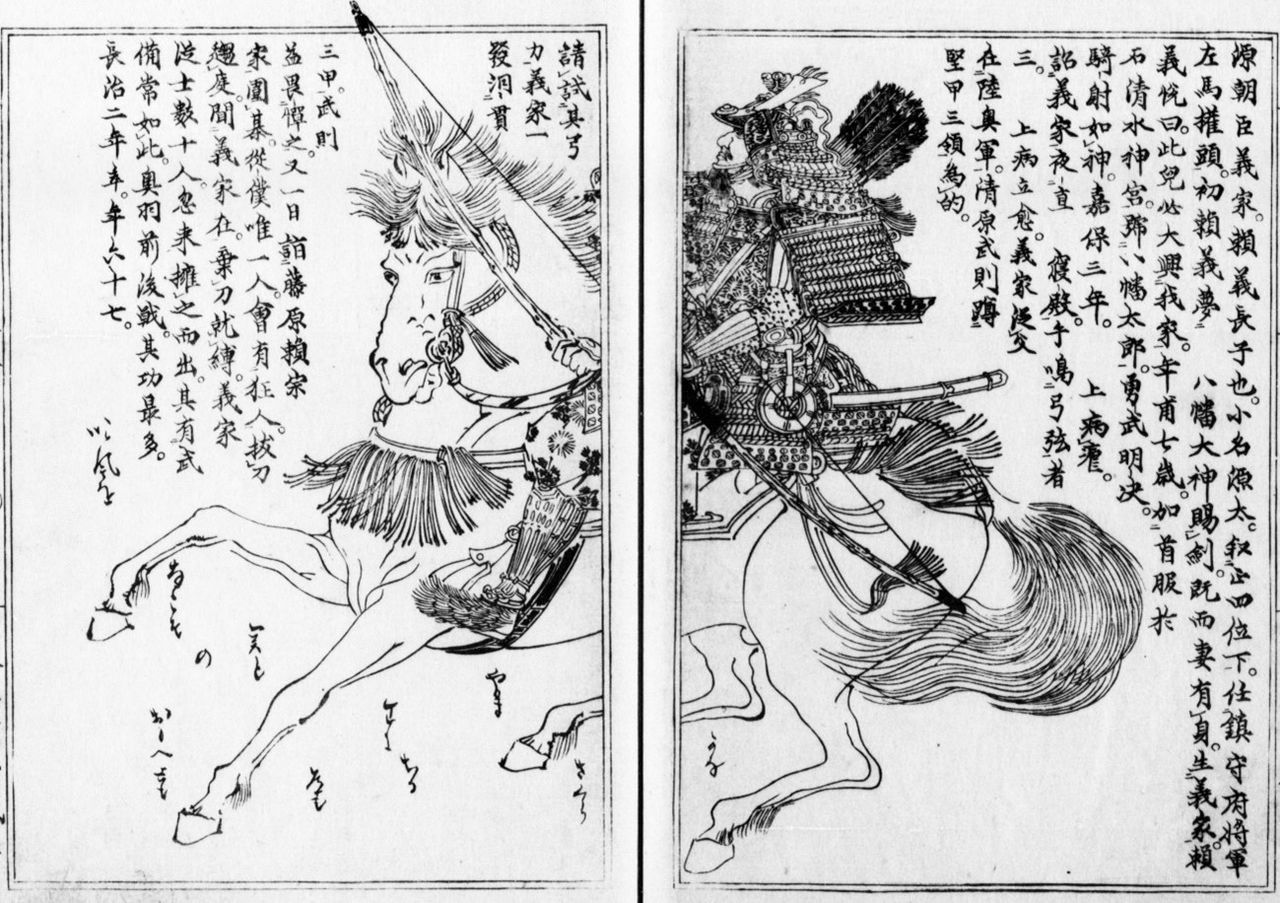 源朝臣義家。頼義長子也。小名源太。叙正四位下。任鎮守府将軍
左馬権頭。初頼義夢 八幡大神賜剣。既而妻有身。生義家。頼
義悦曰。此児必大興我家。年甫七歳。加首服於
石清水神宮。号八幡太郎。勇武明決。
騎射如神。嘉保三年。 上病
詔義家夜直 寝殿。手鳴弓弦者
三。 上病立愈。義家従父
在陸奥軍。清原武則蹲
堅甲三領為的。
請試其弓
力義家一
發洞貫
三甲。武則
益畏憚之。又一日詣藤原頼宗
家囲碁。従僕唯一人。会有狂人。抜刀
過庭間義家在。棄刀就縛。義家
従士数十人。忽来擁之而出。其有武
備常如此。奥羽前後戦。其功最多。
長治二年卒。年六十七。
吹風を
なこそ
の
関と
おもへとも
道も
せに
ちる
やま
さくら
かな